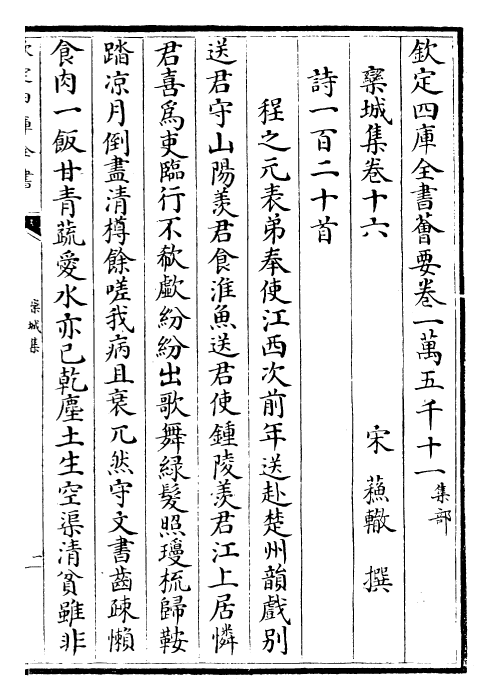 欽定四庫全書薈要卷一萬五千十一集部
欒城集卷十六
宋蘓轍撰
詩一百二十首
程之元表弟奉使江西次前年送赴楚州韻戲别
送君守山陽羨君食淮魚送君使鍾陵羨君江上居憐
君喜爲吏臨行不欷歔紛紛出歌舞緑髮照瓊梳歸鞍
踏凉月倒盡清樽餘嗟我病且衰兀然守文書齒疎懶
食肉一飯甘青蔬愛水亦已乾塵土生空渠清貧雖非
欽定四庫全書
欒城集